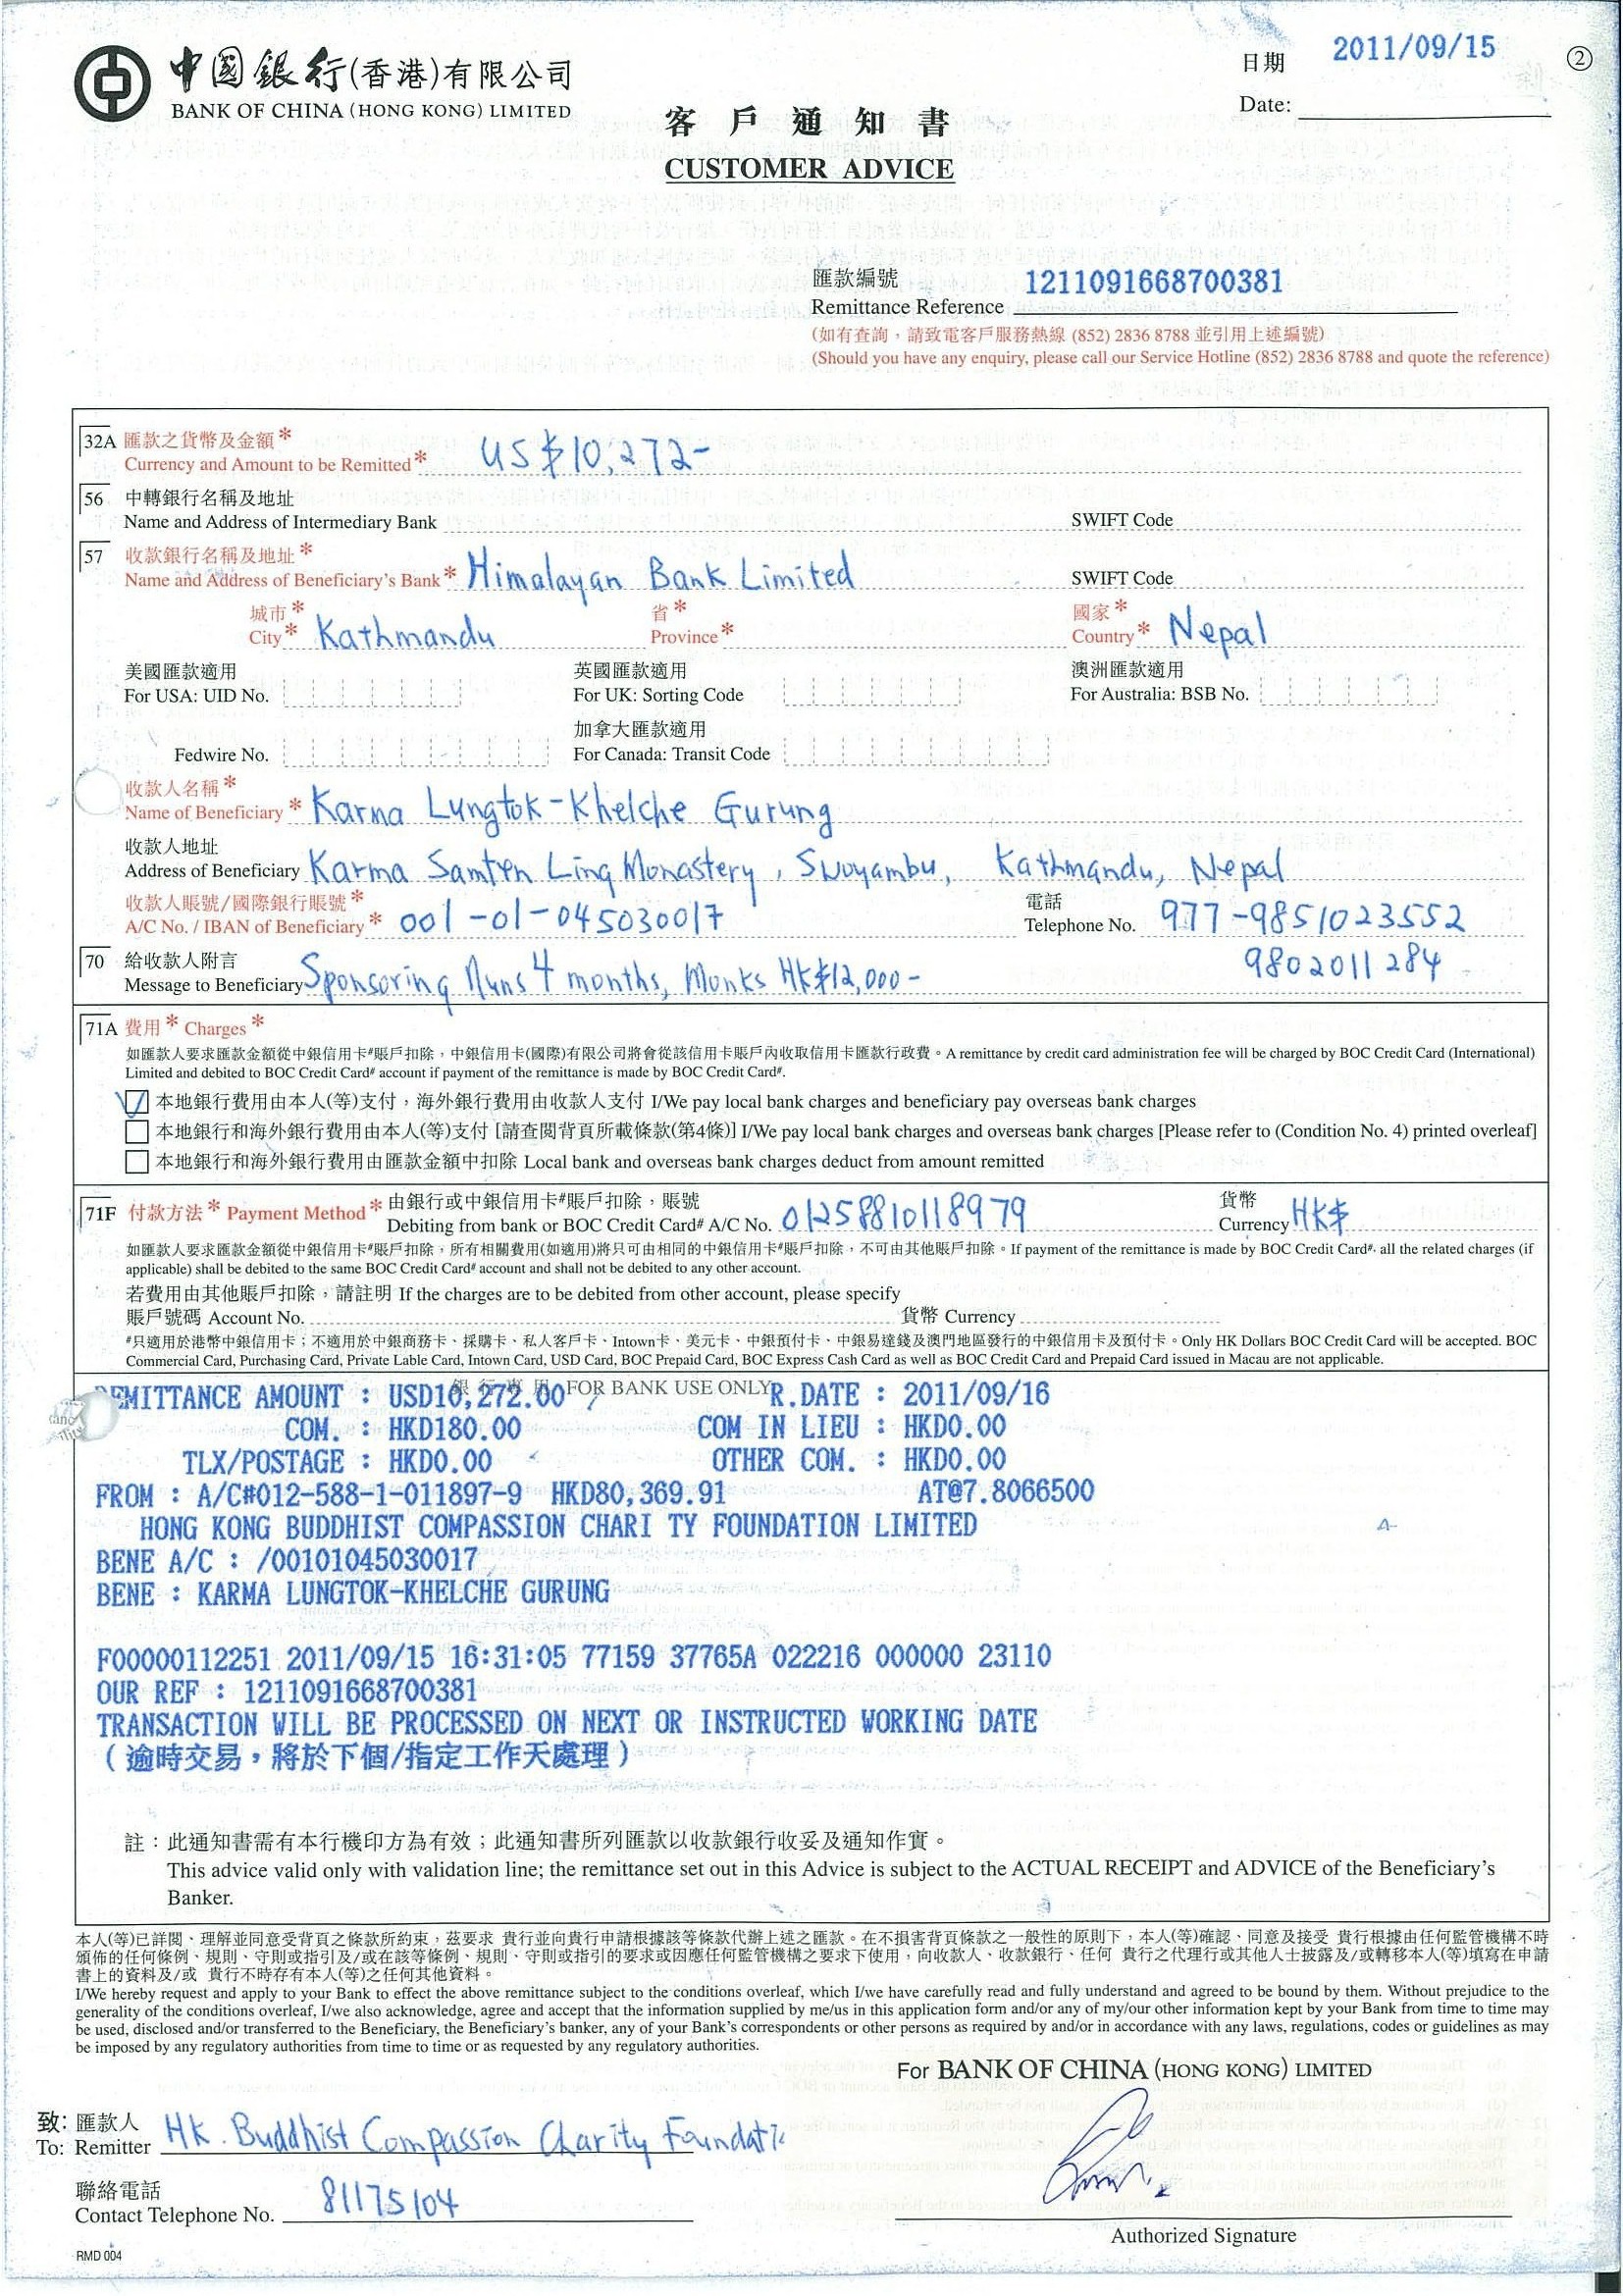 中國銀行(香港)有限公司
BANK OF CHINA (HONG KONG) LIMITED
日期 2011/09/15
Date:
②
客戶通知書
CUSTOMER ADVICE
匯款編號
Remittance Reference 1211091668700381
(如有查詢，請致電客戶服務熱線 (852) 2836 8788 並引用上述編號)
(Should you have any enquiry, please call our Service Hotline (852) 2836 8788 and quote the reference)
32A 匯款之貨幣及金額*
Currency and Amount to be Remitted* US$10,272-
56 中轉銀行名稱及地址
Name and Address of Intermediary Bank SWIFT Code
57 收款銀行名稱及地址*
Name and Address of Beneficiary's Bank* Himalayan Bank Limited SWIFT Code
城市* 省* 國家*
City* Kathmandu Province* Country* Nepal
美國匯款適用 英國匯款適用 澳洲匯款適用
For USA: UID No. For UK: Sorting Code For Australia: BSB No.
加拿大匯款適用
Fedwire No. For Canada: Transit Code
收款人名稱*
Name of Beneficiary * Karma Lungtok-Khelche Gurung
收款人地址
Address of Beneficiary Karma Samten Ling Monastery, Swoyambu, Kathmandu, Nepal
收款人賬號/國際銀行賬號* 電話
A/C No. / IBAN of Beneficiary* 001-01-045030017 Telephone No. 977-9851023552
9802011284
70 給收款人附言
Message to Beneficiary Sponsoring Nuns 4 months, Monks HK$12,000-
71A 費用* Charges*
如匯款人要求匯款金額從中銀信用卡#賬戶扣除，中銀信用卡(國際)有限公司將會從該信用卡賬戶內收取信用卡匯款行政費。A remittance by credit card administration fee will be charged by BOC Credit Card (International)
Limited and debited to BOC Credit Card# account if payment of the remittance is made by BOC Credit Card#.
本地銀行費用由本人(等)支付，海外銀行費用由收款人支付 I/We pay local bank charges and beneficiary pay overseas bank charges
本地銀行和海外銀行費用由本人(等)支付 [請查閱背頁所載條款(第4條)] I/We pay local bank charges and overseas bank charges [Please refer to (Condition No. 4) printed overleaf]
本地銀行和海外銀行費用由匯款金額中扣除 Local bank and overseas bank charges deduct from amount remitted
71F 付款方法* Payment Method* 由銀行或中銀信用卡#賬戶扣除，賬號 貨幣
Debiting from bank or BOC Credit Card# A/C No. 01258810118979 Currency HK$
如匯款人要求匯款金額從中銀信用卡#賬戶扣除，所有相關費用(如適用)將只可由相同的中銀信用卡#賬戶扣除，不可由其他賬戶扣除。If payment of the remittance is made by BOC Credit Card#, all the related charges (if
applicable) shall be debited to the same BOC Credit Card# account and shall not be debited to any other account.
若費用由其他賬戶扣除，請註明 If the charges are to be debited from other account, please specify
賬戶號碼 Account No. 貨幣 Currency
#只適用於港幣中銀信用卡；不適用於中銀商務卡、採購卡、私人客戶卡、Intown卡、美元卡、中銀預付卡、中銀易達錢及澳門地區發行的中銀信用卡及預付卡。Only HK Dollars BOC Credit Card will be accepted. BOC
Commercial Card, Purchasing Card, Private Lable Card, Intown Card, USD Card, BOC Prepaid Card, BOC Express Cash Card as well as BOC Credit Card and Prepaid Card issued in Macau are not applicable.
銀行專用 FOR BANK USE ONLY
REMITTANCE AMOUNT : USD10,272.00 R.DATE : 2011/09/16
COM. : HKD180.00 COM IN LIEU : HKD0.00
TLX/POSTAGE : HKD0.00 OTHER COM. : HKD0.00
FROM : A/C#012-588-1-011897-9 HKD80,369.91 AT@7.8066500
HONG KONG BUDDHIST COMPASSION CHARI TY FOUNDATION LIMITED
BENE A/C : /00101045030017
BENE : KARMA LUNGTOK-KHELCHE GURUNG
F00000112251 2011/09/15 16:31:05 77159 37765A 022216 000000 23110
OUR REF : 1211091668700381
TRANSACTION WILL BE PROCESSED ON NEXT OR INSTRUCTED WORKING DATE
(逾時交易，將於下個/指定工作天處理)
註：此通知書需有本行機印方為有效；此通知書所列匯款以收款銀行收妥及通知作實。
This advice valid only with validation line; the remittance set out in this Advice is subject to the ACTUAL RECEIPT and ADVICE of the Beneficiary's
Banker.
本人(等)已詳閱、理解並同意受背頁之條款所約束，茲要求 貴行並向貴行申請根據該等條款代辦上述之匯款。在不損害背頁條款之一般性的原則下，本人(等)確認、同意及接受 貴行根據由任何監管機構不時
頒佈的任何條例、規則、守則或指引及/或在該等條例、規則、守則或指引的要求或因應任何監管機構之要求下使用，向收款人、收款銀行、任何 貴行之代理行或其他人士披露及/或轉移本人(等)填寫在申請
書上的資料及/或 貴行不時存有本人(等)之任何其他資料。
I/We hereby request and apply to your Bank to effect the above remittance subject to the conditions overleaf, which I/we have carefully read and fully understand and agreed to be bound by them. Without prejudice to the
generality of the conditions overleaf, I/we also acknowledge, agree and accept that the information supplied by me/us in this application form and/or any of my/our other information kept by your Bank from time to time may
be used, disclosed and/or transferred to the Beneficiary, the Beneficiary's banker, any of your Bank's correspondents or other persons as required by and/or in accordance with any laws, regulations, codes or guidelines as may
be imposed by any regulatory authorities from time to time or as requested by any regulatory authorities.
For BANK OF CHINA (HONG KONG) LIMITED
致: 匯款人
To: Remitter HK. Buddhist Compassion Charity Foundati
聯絡電話
Contact Telephone No. 81175104
Authorized Signature
RMD 004